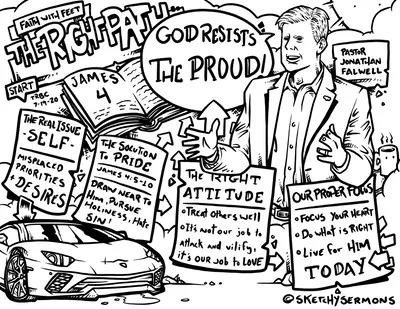 FAITH WITH FEET
THE RIGHT PATH...
START
TRBC
7-19-20
JAMES
4
GOD RESISTS
THE PROUD!
PASTOR
JONATHAN
FALWELL
THE REAL ISSUE
SELF
MISPLACED
PRIORITIES
+ DESIRES
THE SOLUTION
TO PRIDE
JAMES 4:5-20
DRAW NEAR TO
HIM, PURSUE
HOLINESS, HATE
SIN!
THE RIGHT
ATTITUDE
• TREAT OTHERS WELL
• IT'S NOT OUR JOB TO
ATTACK AND VILIFY,
IT'S OUR JOB TO LOVE
OUR PROPER FOCUS
• FOCUS YOUR HEART
• DO WHAT IS RIGHT
• LIVE FOR HIM
TODAY
©SKETCHYSERMONS